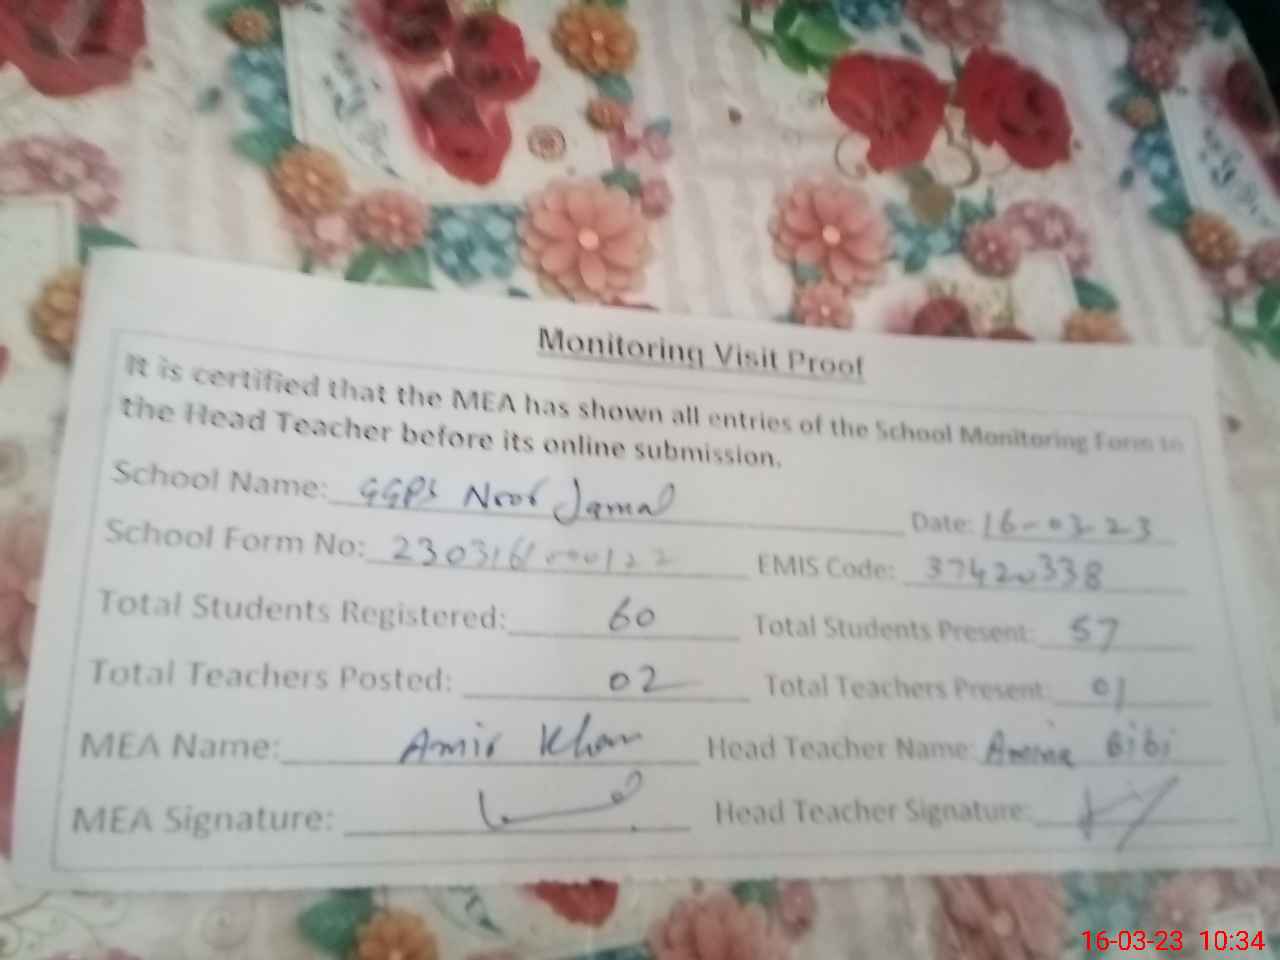 Monitoring Visit Proof
It is certified that the MEA has shown all entries of the School Monitoring Form to
the Head Teacher before its online submission.
School Name: GGPS Noor Jamal Date: 16-03-23
School Form No: EMIS Code: 37420338
Total Students Registered: 60 Total Students Present: 57
Total Teachers Posted: 02 Total Teachers Present: 01
MEA Name: Amir Khan Head Teacher Name: Amina Bibi
MEA Signature: Head Teacher Signature:
16-03-23 10:34